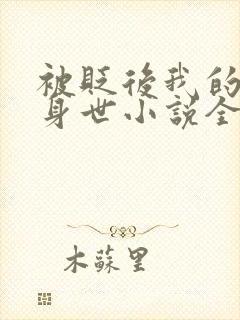 被贬後我的
身世小説全
木蘇里